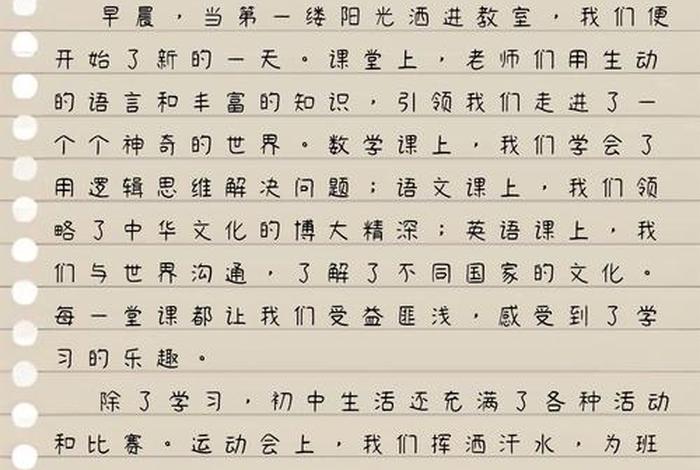 早晨，当第一缕阳光洒进教室，我们便
开始了新的一天。课堂上，老师们用生动
的语言和丰富的知识，引领我们走进了一
个个神奇的世界。数学课上，我们学会了
用逻辑思维解决问题；语文课上，我们领
略了中华文化的博大精深；英语课上，我
们与世界沟通，了解了不同国家的文化。
每一堂课都让我们受益匪浅，感受到了学
习的乐趣。
除了学习，初中生活还充满了各种活动
和比赛。运动会上，我们挥洒汗水，为班